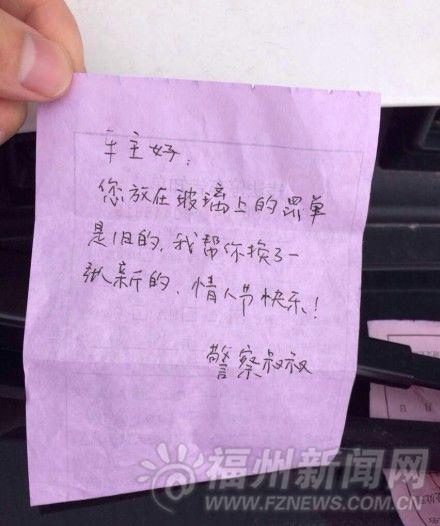 车主好：
您放在玻璃上的罚单
是旧的，我帮你换了一
张新的，情人节快乐！
警察叔叔
福州新闻网
WWW.FZNEWS.COM.CN